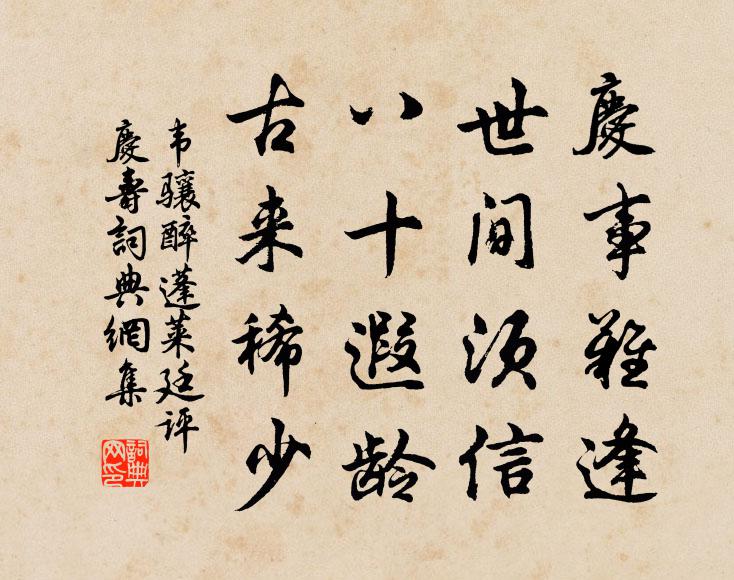 慶事難逢
世间须信
八十遐龄
古来稀少
韦骧醉蓬莱廷评
慶壽詞典網集
詞典网印